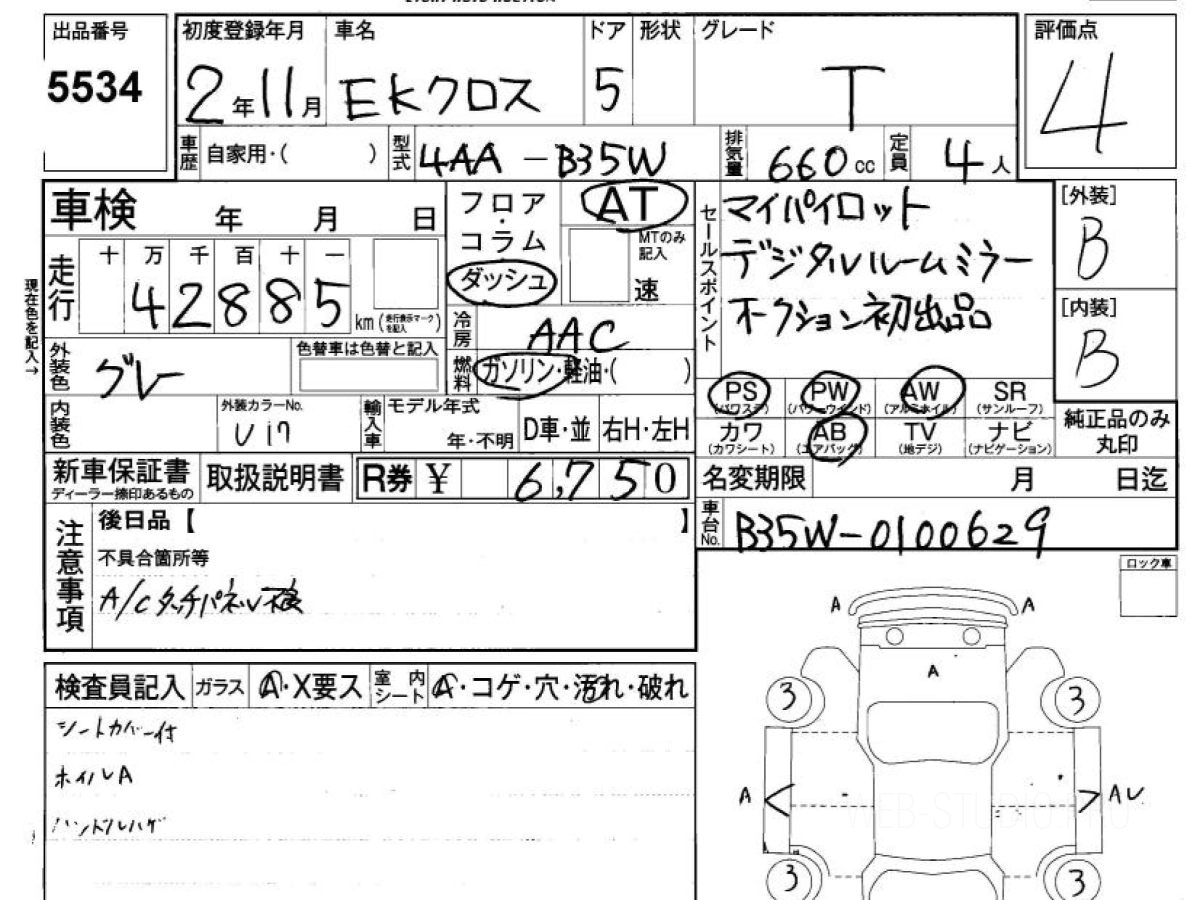 出品番号 初度登録年月 車名 ドア 形状 グレード 評価点
5534 2年11月 EKクロス 5 T 4
車歴 自家用・( ) 型式 4AA-B35W 排気量 660cc 定員 4人
車検 年 月 日
フロア・コラム
ダッシュ
AT
MTのみ記入
速
セールスポイント
マイパイロット
デジタルルームミラー
オークション初出品
[外装]
B
[内装]
B
現在色を記入→
走行 十 万 千 百 十 一
42885 km (走行表示マークを記入)
冷房 AAC
燃料 ガソリン・軽油・( )
外装色 グレー 色替車は色替と記入
内装色 外装カラーNo. U17 輸入車 モデル年式 年・不明 D車・並 右H・左H
PS (パワステ) PW (パワーウインド) AW (アルミホイル) SR (サンルーフ)
カワ (カワシート) AB (エアバッグ) TV (地デジ) ナビ (ナビゲーション)
純正品のみ丸印
新車保証書 ディーラー捺印あるもの 取扱説明書 R券 ¥ 6,750
名変期限 月 日迄
車台No. B35W-0100629
注意事項
後日品【 】
不具合箇所等
A/Cタッチパネル不良
ロック車
検査員記入 ガラス A・X要ス 室内シート A・コゲ・穴・汚れ・破れ
シートカバー付
ホイルA
ハンドルハゲ
A A
A
3 3
A AU
WEB-STUDIO.PRO
3 3